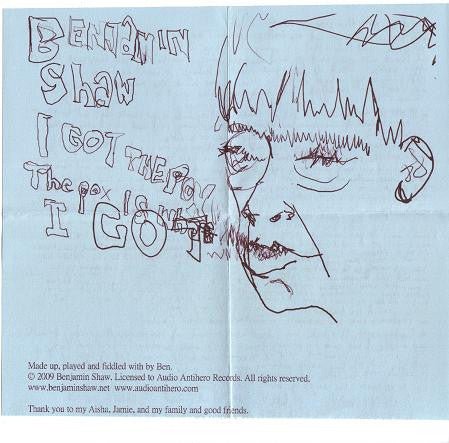 BENJAMIN
SHAW
I GOT THE POX
The pox IS what
I GOT
Made up, played and fiddled with by Ben.
© 2009 Benjamin Shaw. Licensed to Audio Antihero Records. All rights reserved.
www.benjaminshaw.net www.audioantihero.com
Thank you to my Aisha, Jamie, and my family and good friends.